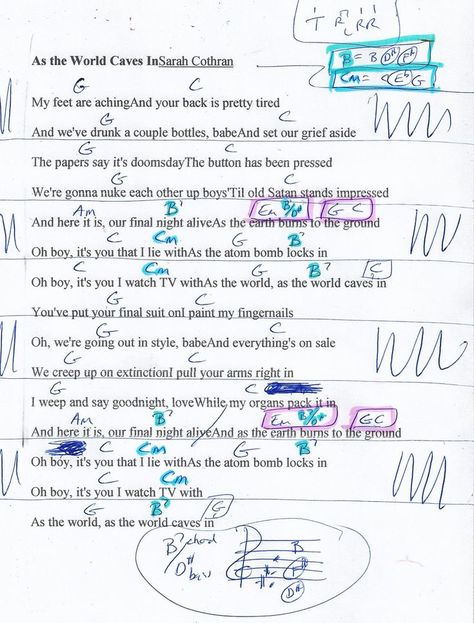 T RLRR
As the World Caves InSarah Cothran
B = B D# F#
Cm = C Eb G
G C
My feet are achingAnd your back is pretty tired
G C
And we've drunk a couple bottles, babeAnd set our grief aside
G C
The papers say it's doomsdayThe button has been pressed
G C
We're gonna nuke each other up boys'Til old Satan stands impressed
Am B7 Em B7/D# G C
And here it is, our final night aliveAs the earth burns to the ground
C Cm G B7
Oh boy, it's you that I lie withAs the atom bomb locks in
C Cm G B7 C
Oh boy, it's you I watch TV withAs the world, as the world caves in
G C
You've put your final suit onI paint my fingernails
G C
Oh, we're going out in style, babeAnd everything's on sale
G C
We creep up on extinctionI pull your arms right in
G C
I weep and say goodnight, loveWhile my organs pack it in
Am B7 Em B7/D# G C
And here it is, our final night aliveAnd as the earth burns to the ground
C Cm G B7
Oh boy, it's you that I lie withAs the atom bomb locks in
C Cm
Oh boy, it's you I watch TV with
G B7 G
As the world, as the world caves in
B7 chord
D# bass
B
F#
D#